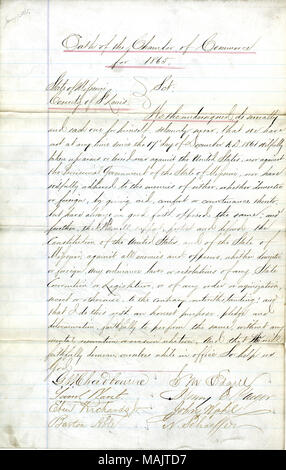 Oath of the Chamber of Commerce
for 1865.
State of Missouri } Sct.
County of St Louis
We the undersigned, do severally
and each one for himself solemnly swear, that we have
not at any time since the 17th day of December A.D. 1861 wilfully
taken up arms or levied war against the United States, nor against
the Provisional Government of the State of Missouri, nor have
wilfully adhered to the enemies of either, whether domestic
or foreign, by giving aid, comfort or countenance thereto,
but have always in good faith opposed the same; and
further, that I will support, protect and defend the
Constitution of the United States and of the State of
Missouri against all enemies and opposers, whether domestic
or foreign, any ordinance, law or resolution of any State
Convention or Legislature, or of any order or organization,
secret or otherwise, to the contrary notwithstanding; and
that I do this with an honest purpose, pledge and
determination, faithfully to perform the same, without any
mental reservation or evasion whatever. And that I will
faithfully demean ourselves while in office So help us
God.
E. M. Edgell
John Wahl
Barton Able
N. Schaeffer
alamy
Image ID: MAJTD7
www.alamy.com